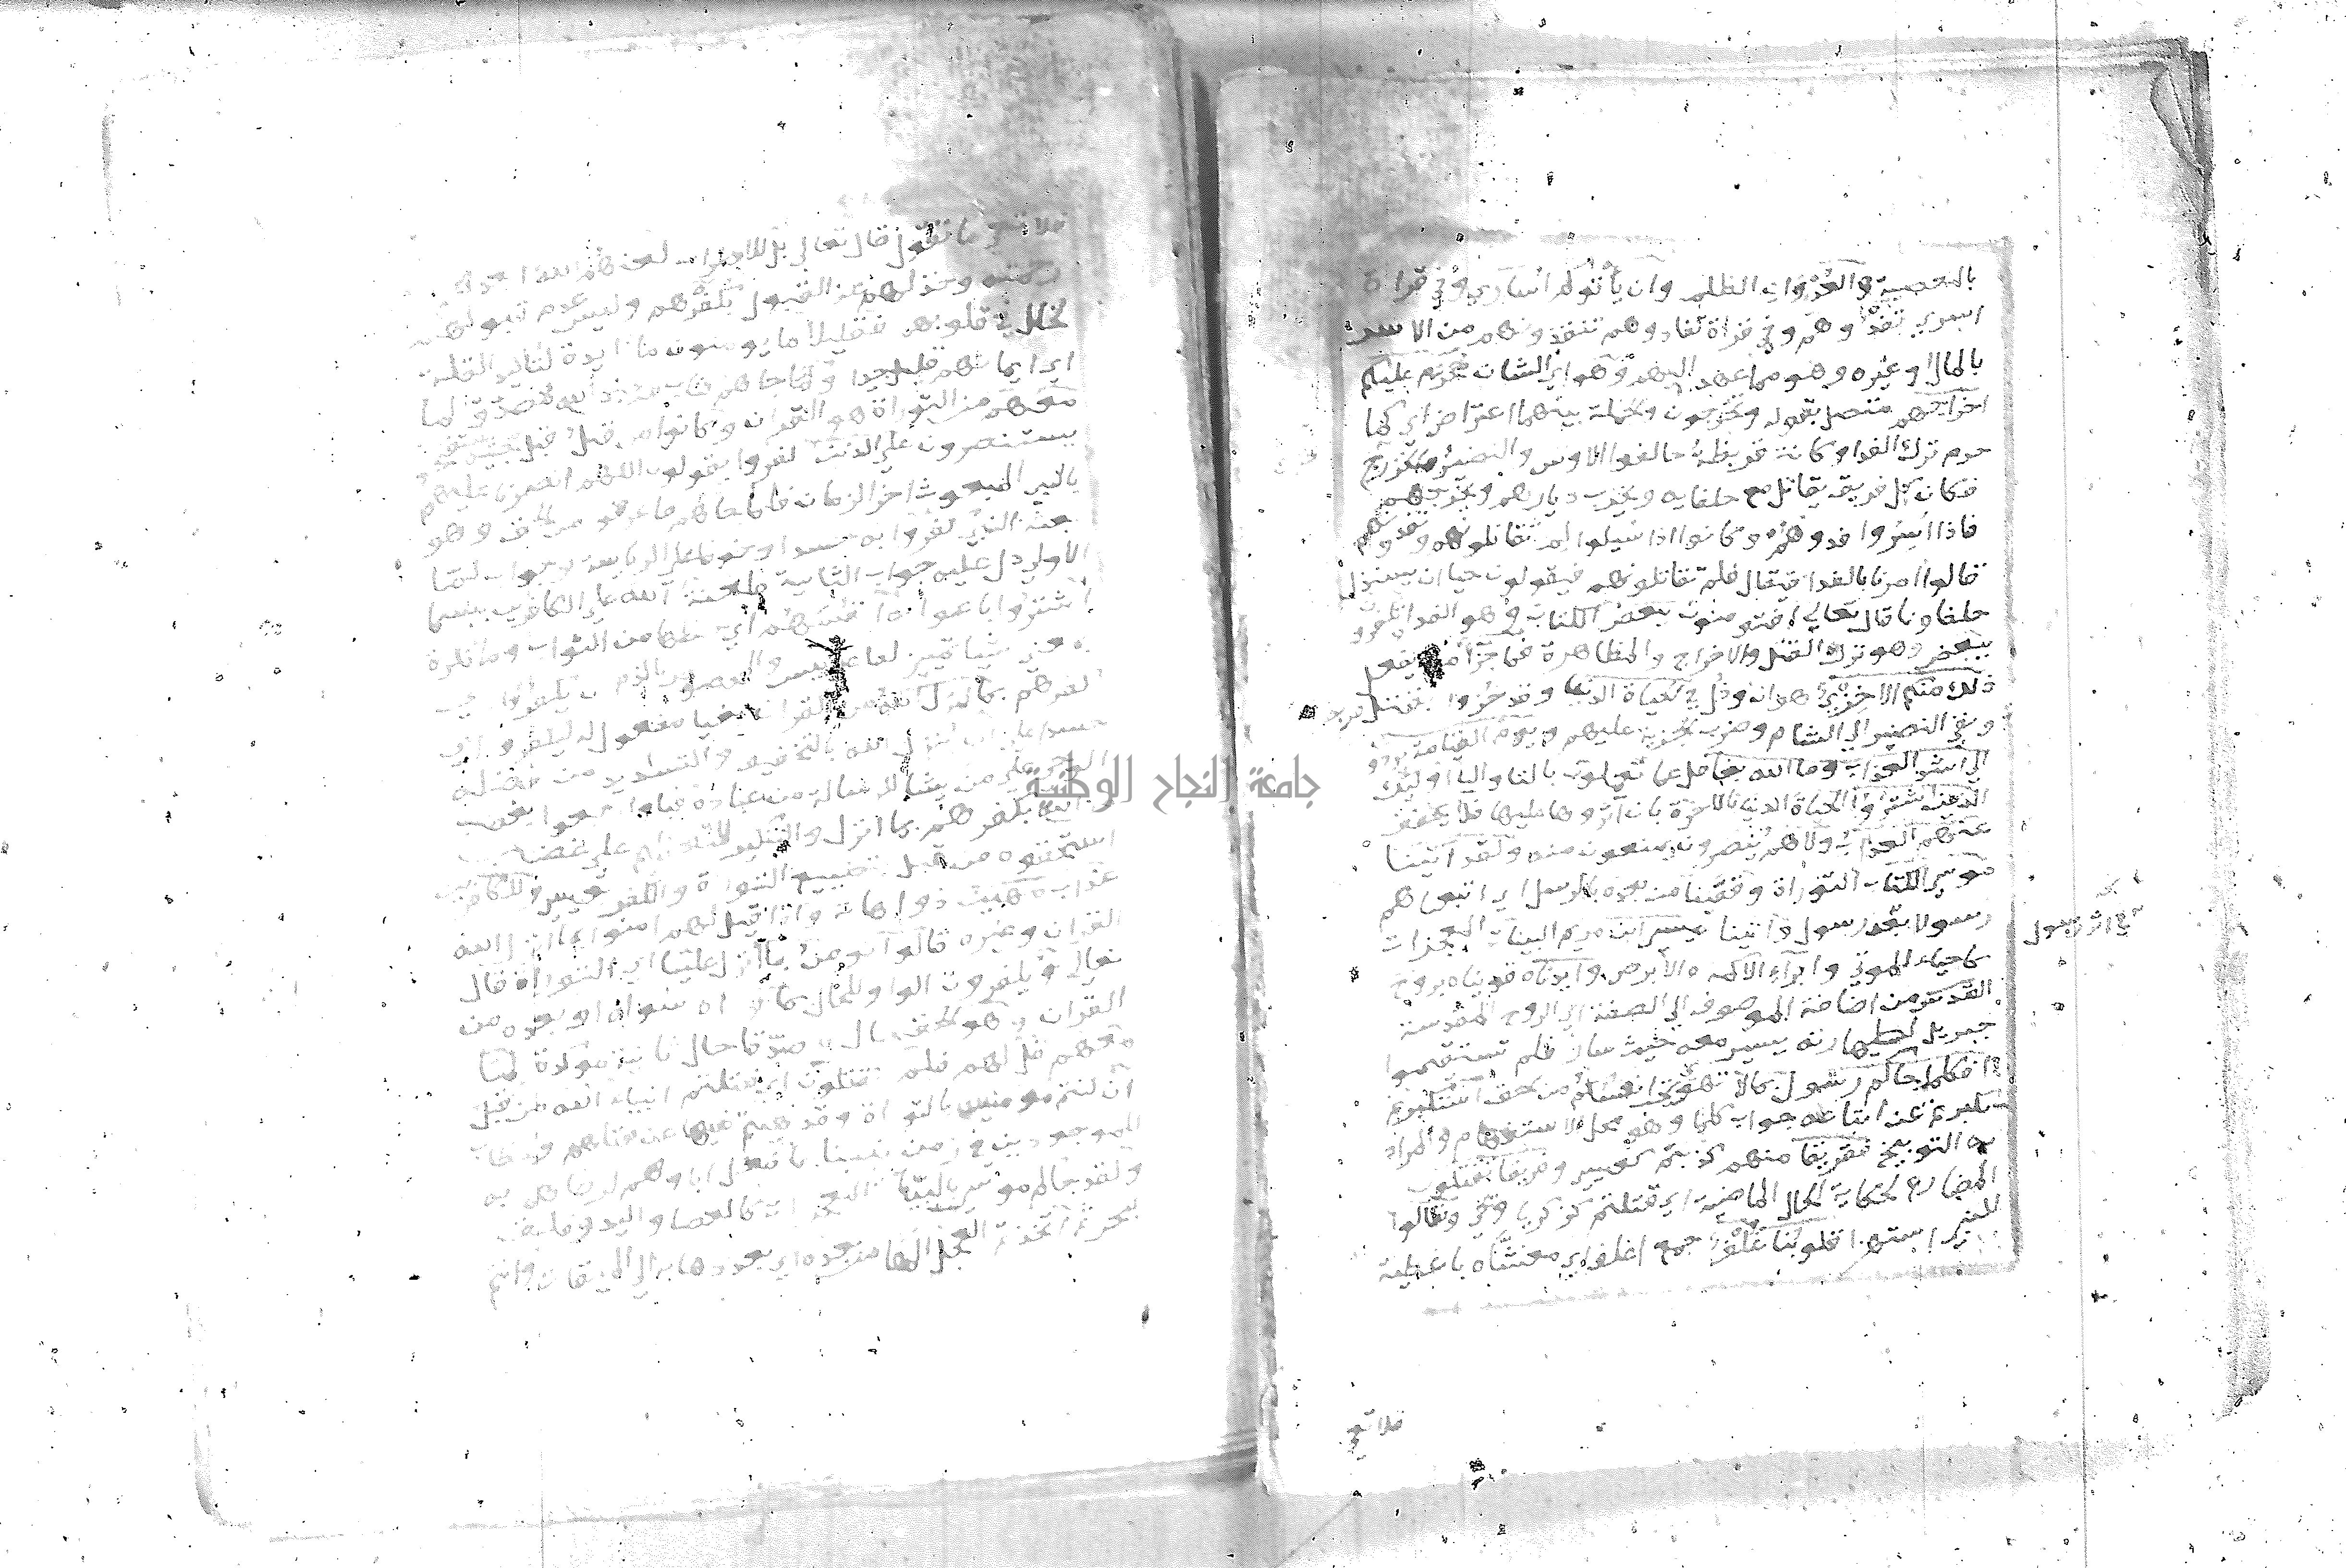 بالمعصية والعدوان الظلم وان ياتوكم اسارى وفي قراة
اسرى تفدوهم وفي قراة تفادوهم تنقذونهم من الاسر
بالمال او غيره وهو مما عهد اليهم وهو اي الشان محرم عليكم
اخراجهم متصل بقوله وتخرجون والجملة بينهما اعتراض اي كما
حرم ترك الفدا وكانت قريظة حالفوا الاوس والنضير الخزرج
فكان كل فريق يقاتل مع حلفايه ويخرب ديارهم ويخرجهم
فاذا اسروا فدوهم وكانوا اذا سيلوا لم تقاتلونهم وتفدونهم
قالوا امرنا بالفدا فيقال فلم تقاتلونهم فيقولون حيا ان يستذل
حلفاونا قال تعالى افتومنون ببعض الكتاب وهو الفدا وتكفرون
ببعض وهو ترك القتل والاخراج والمظاهرة فما جزا من يفعل
ذلك منكم الا خزي هوان وذل في الحياة الدنيا وقد خزوا بقتل قريظة
ونفي النضير الى الشام وضرب الجزية عليهم ويوم القيامة يردون
الى اشد العذاب وما الله بغافل عما تعملون بالتا واليا اوليك
الذين اشتروا الحياة الدنيا بالاخرة بان اثروها عليها فلا يخفف
عنهم العذاب ولا هم ينصرون يمنعون منه ولقد اتينا
موسى الكتاب التوراة وقفينا من بعده بالرسل اي اتبعناهم
رسولا بعد رسول واتينا عيسى ابن مريم البينات المعجزات
في اثر رسول
كاحياء الموتى وابراء الاكمه والابرص وايدناه قويناه بروح
القدس من اضافة الموصوف الى الصفة اي الروح المقدسة
جبريل لطهارته يسير معه حيث سار فلم تستقيموا
افكلما جاكم رسول بما لا تهوى انفسكم من الحق استكبرتم
تكبرتم عن اتباعه جواب كلما وهو محل الاستفهام والمراد
به التوبيخ ففريقا منهم كذبتم كعيسى وفريقا تقتلون
المضارع لحكاية الحال الماضية اي قتلتم كزكريا ويحيى وقالوا
للنبي استهزا قلوبنا غلف جمع اغلف اي مغشاة باغطية
فلا تعي
فلا تعي ما تقول قال تعالى بل للاضراب لعنهم الله ابعدهم
رحمته وخذلهم عن القبول بكفرهم وليس عدم قبولهم
لخلل في قلوبهم فقليلا ما يومنون ما زايدة لتاكيد القلة
اي ايمانهم قليل جدا ولما جاهم كتاب من عند الله مصدق لما
معهم من التوراة هو القران وكانوا من قبل قبل مجيئه
يستنصرون على الذين كفروا يقولون اللهم انصرنا عليهم
بالنبي المبعوث اخر الزمان فلما جاهم ما عرفوا من الحق وهو
بعثة النبي كفروا به حسدا وخوفا على الرياسة وجواب لما
الاولى دل عليه جواب الثانية فلعنة الله على الكافرين بيسما
اشتروا باعوا به انفسهم اي حظها من الثواب وما نكرة
كفرهم بما انزل الله من القران بغيا مفعول له ليكفروا اي
حسدا على ان ينزل الله بالتخفيف والتشديد من فضله
الوحي على من يشا للرسالة من عباده فباوا رجعوا بغضب
من الله بكفرهم بما انزل والتنكير للتعظيم على غضب
استحقوه من قبل بتضييع التوراة والكفر بعيسى وللكافرين
عذاب مهين ذو اهانة واذا قيل لهم امنوا بما انزل الله
القران وغيره قالوا نومن بما انزل علينا اي التوراة قال
تعالى ويكفرون الواو للحال بما وراه سواه او بعده من
القران وهو الحق حال مصدقا حال ثانية موكدة لما
معهم قل لهم فلم تقتلون اي قتلتم انبياء الله من قبل
ان كنتم مومنين بالتوراة وقد نهيتم فيها عن قتلهم والخطاب
للموجودين في زمن نبينا بما فعل اباوهم لرضاهم به
ولقد جاكم موسى بالبينات المعجزات كالعصا واليد وفلق
البحر ثم اتخذتم العجل الها من بعده اي بعد ذهابه الى الميقات وانتم
جامعة النجاح الوطنية